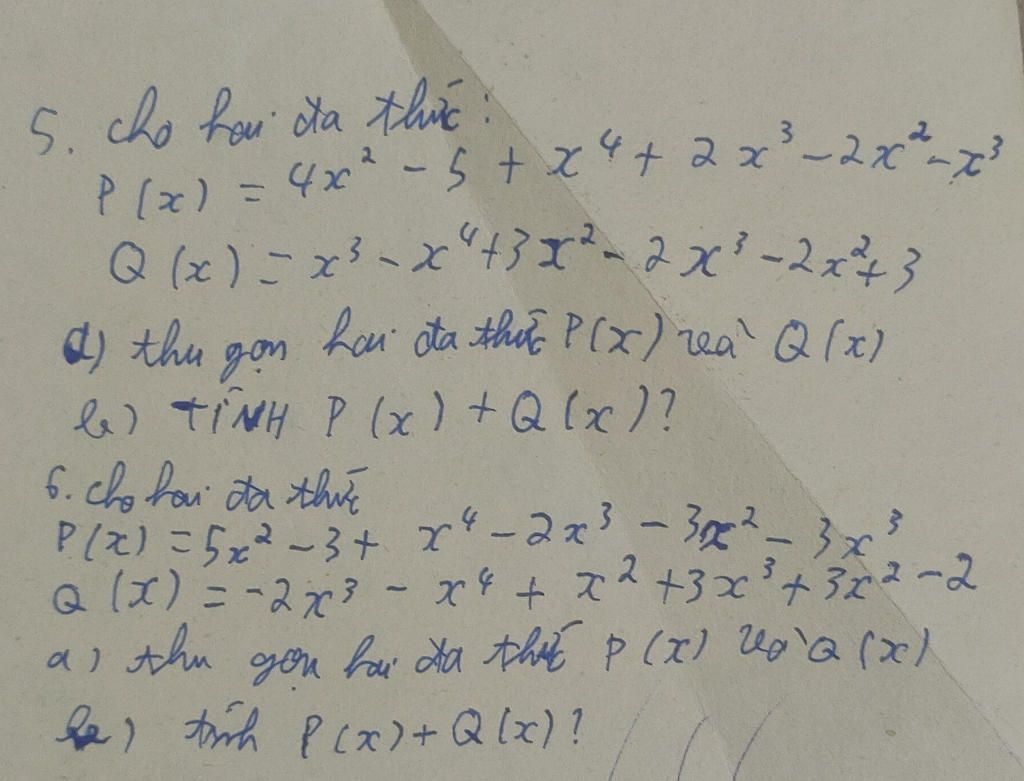 5. cho hai đa thức:
P(x) = 4x² - 5 + x⁴ + 2x³ - 2x² - x³
Q(x) = x³ - x⁴ + 3x² - 2x³ - 2x² + 3
a) thu gọn hai đa thức P(x) và Q(x)
b) TÍNH P(x) + Q(x)?
6. cho hai đa thức
P(x) = 5x² - 3 + x⁴ - 2x³ - 3x² - 3x³
Q(x) = -2x³ - x⁴ + x² + 3x³ + 3x² - 2
a) thu gọn hai đa thức P(x) và Q(x)
b) tính P(x) + Q(x)?